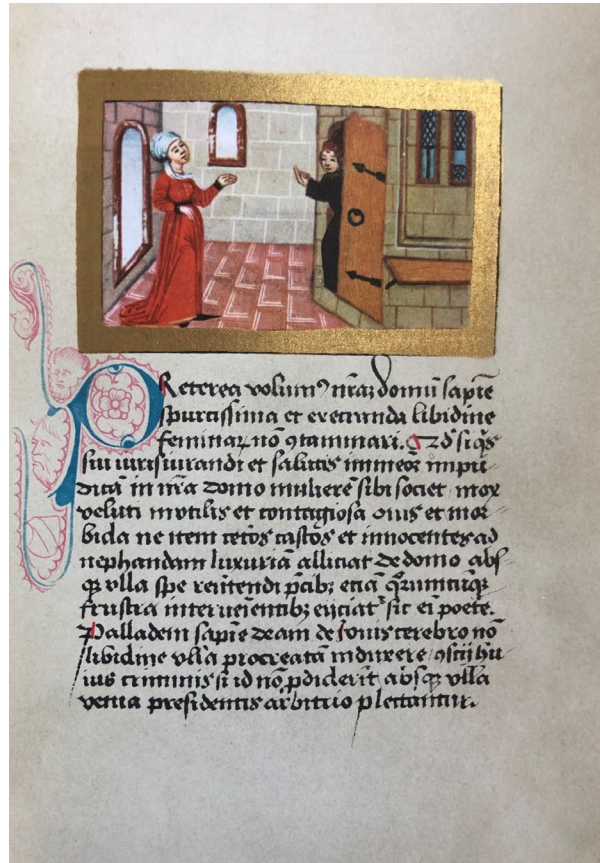 PReterea volum⁹ nr̄aꝫ domū sapīe
spurcissima et execranda libidine
feminaꝝ nō ꝯtaminari. Qd̕ si q̄s
sui iurisiurandi et salutis immeōr impu-
dicā in nr̄a domo mulierē sibi societ mox
veluti inutilis et contagiosa ouis et mor-
bida ne item cetōs castos et innocentes ad
nephandam luxuriā alliciat de domo abs-
qꝫ vlla spe reūtendi p̄cibꝫ etiā q̄rumcūqꝫ
frustra interueīentibꝫ eijciat᷑ sic em̄ poete.
Palladem sapīe deam de Iouis cerebro nō
libidine vlla procreatā induxere ꝯscij hu-
ius criminis si id nō ꝓdiderīt absqꝫ vlla
venia presidentis arbitrio plectantur.